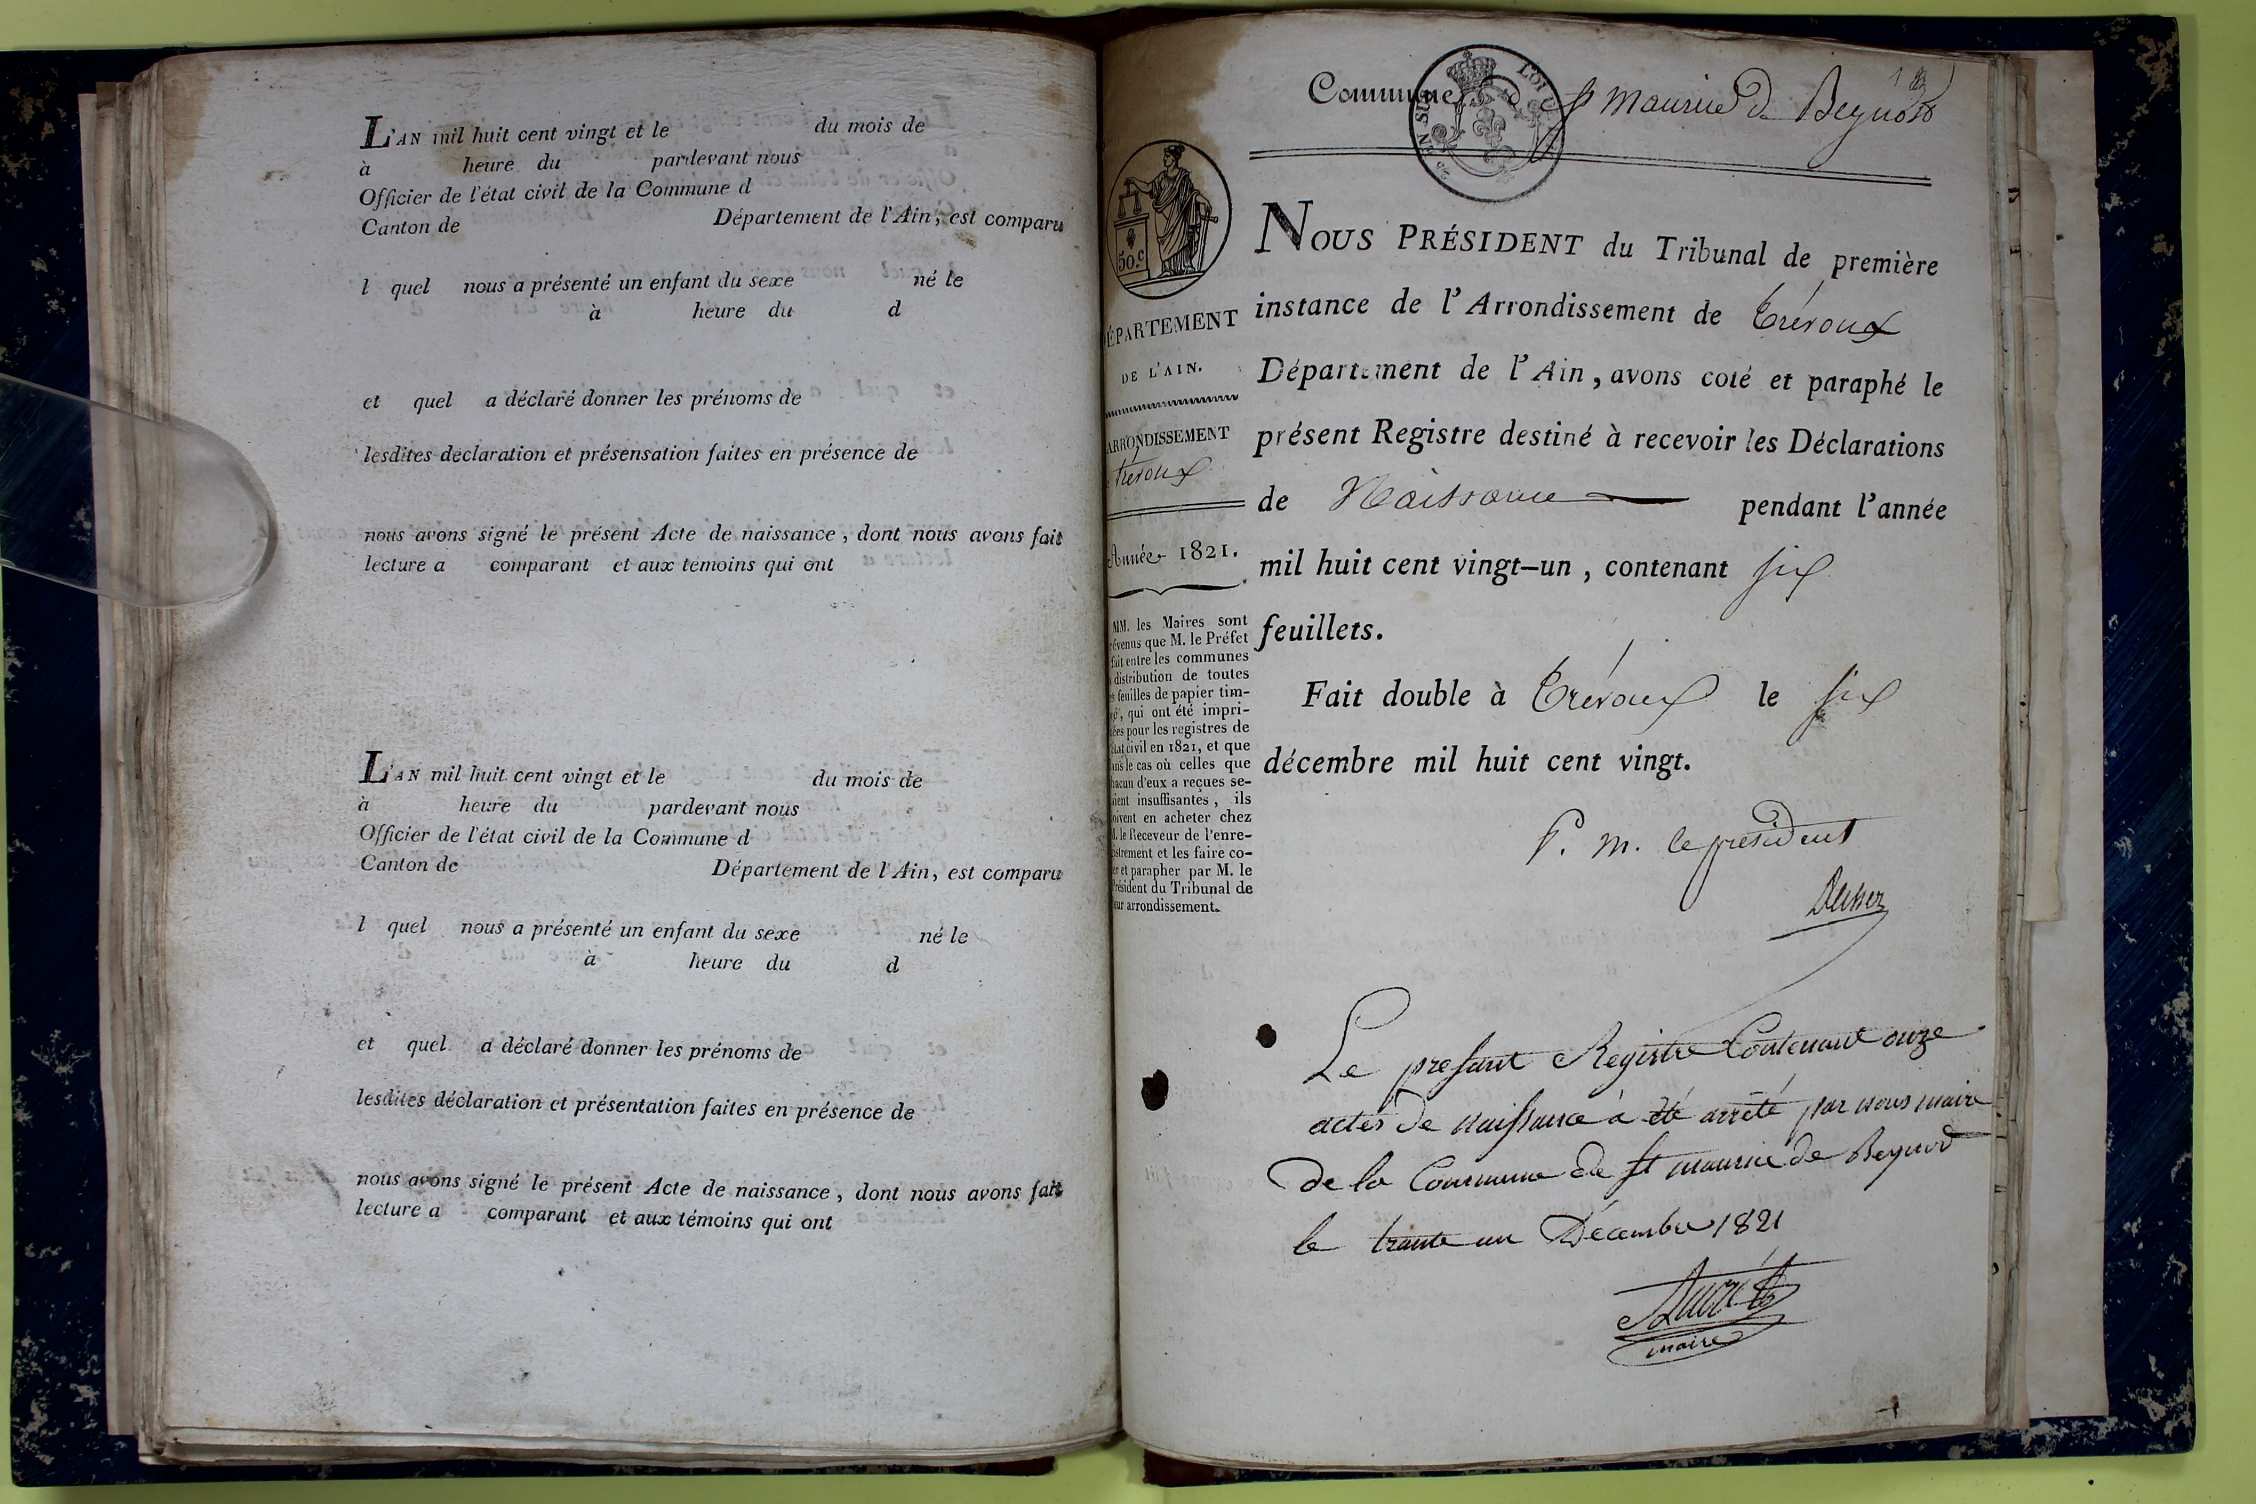 L'AN mil huit cent vingt et le du mois de
à heure du pardevant nous
Officier de l'état civil de la Commune d
Canton de Département de l'Ain, est comparu
l quel nous a présenté un enfant du sexe né le
à heure du d
et quel a déclaré donner les prénoms de
lesdites déclaration et présensation faites en présence de
nous avons signé le présent Acte de naissance, dont nous avons fait
lecture a comparant et aux témoins qui ont
L'AN mil huit cent vingt et le du mois de
à heure du pardevant nous
Officier de l'état civil de la Commune d
Canton de Département de l'Ain, est comparu
l quel nous a présenté un enfant du sexe né le
à heure du d
et quel a déclaré donner les prénoms de
lesdites déclaration et présentation faites en présence de
nous avons signé le présent Acte de naissance, dont nous avons fait
lecture a comparant et aux témoins qui ont
Commune d St maurice d Beynost
50.c
DÉPARTEMENT
DE L'AIN.
ARRONDISSEMENT
Trévoux
Année 1821.
MM. les Maires sont
prévenus que M. le Préfet
fait entre les communes
la distribution de toutes
les feuilles de papier tim-
bré, qui ont été impri-
mées pour les registres de
l'état civil en 1821, et que
dans le cas où celles que
chacun d'eux a reçues se-
roient insuffisantes, ils
doivent en acheter chez
M. le Receveur de l'enre-
gistrement et les faire co-
ter et parapher par M. le
Président du Tribunal de
leur arrondissement.
NOUS PRÉSIDENT du Tribunal de première
instance de l'Arrondissement de Trévoux
Département de l'Ain, avons coté et paraphé le
présent Registre destiné à recevoir les Déclarations
de Naissance pendant l'année
mil huit cent vingt-un, contenant six
feuillets.
Fait double à Trévoux le six
décembre mil huit cent vingt.
P. M. le président
Le present Registre Contenant onze
actes de naissance à été arrêté par nous maire
de la Commune de st maurice de Beynod
le trante un Décembre 1821
maire